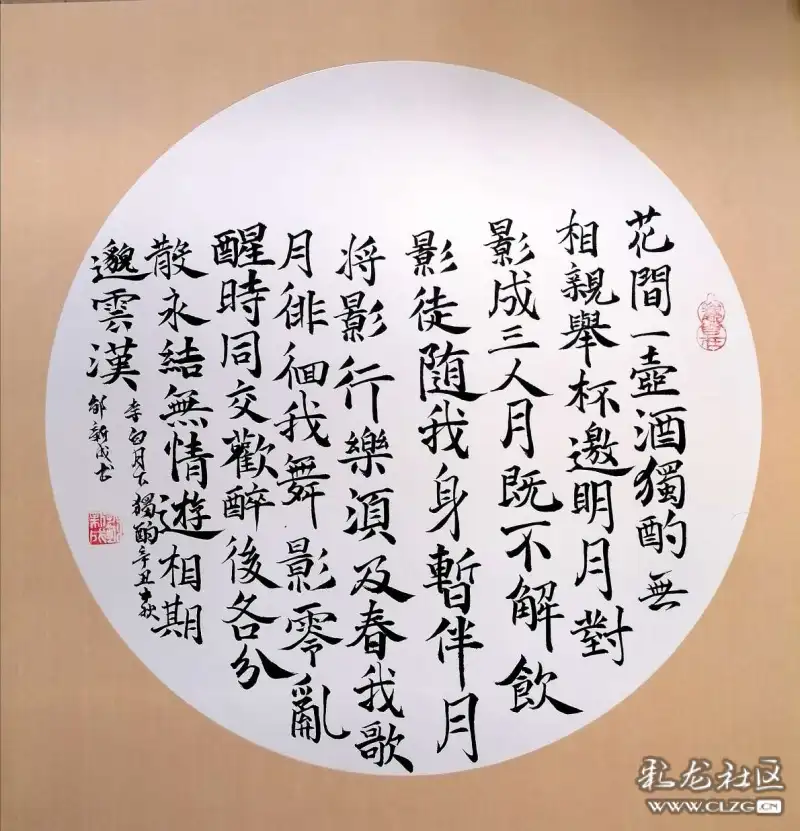 花間一壺酒獨酌無
相親舉杯邀明月對
影成三人月既不解飲
影徒随我身暫伴月
将影行樂須及春我歌
月徘徊我舞影零亂
醒時同交歡醉後各分
散永結無情遊相期
邈雲漢
李白月下獨酌辛丑秋
邹新成书
彩龙社区
WWW.CLZG.CN